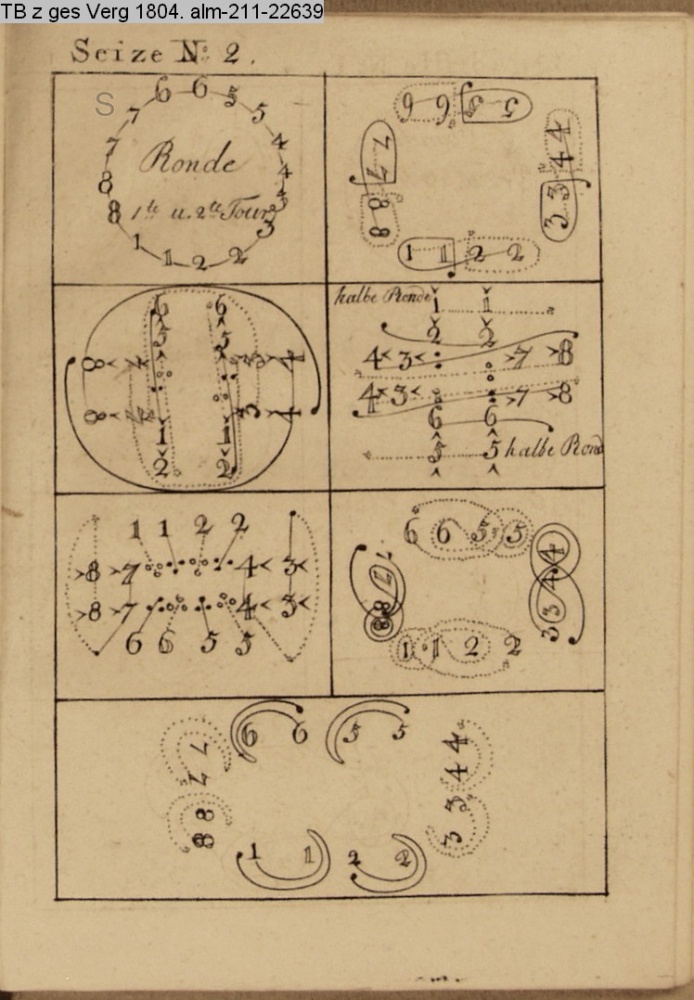 TB z ges Verg 1804. alm-211-22639
Seize No: 2.
S
6 6 5 5
7 4
7 4
8 3
8 3
1 1 2 2
Ronde
1te u. 2te Tour
6 6 5 5
7 7 4 4
8 8 3 3
1 1 2 2
6 6
5 5
8 7 3 4
8 7 3 4
1 1
2 2
halbe Ronde 1 1
2 2
4 3 7 8
4 3 7 8
6 6
5 5 halbe Rond
1 1 2 2
8 7 4 3
8 7 4 3
6 6 5 5
6 6 5 5
7 7 4 4
8 8 3 3
1 1 2 2
6 6 5 5
7 7 4 4
8 8 3 3
1 1 2 2